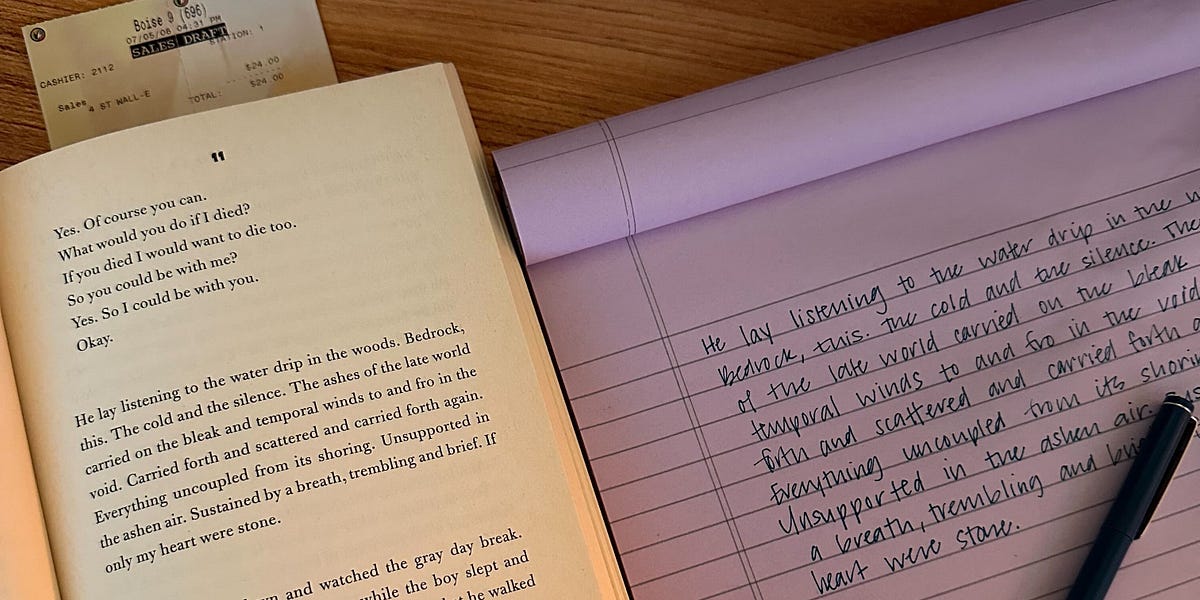 Boise 9 (696)
07/05/08 04:31 PM
SALES DRAFT
STATION: 1
CASHIER: 2112
$24.00
Sales 4 ST WALL-E
TOTAL: $24.00
11
Yes. Of course you can.
What would you do if I died?
If you died I would want to die too.
So you could be with me?
Yes. So I could be with you.
Okay.
He lay listening to the water drip in the woods. Bedrock,
this. The cold and the silence. The ashes of the late world
carried on the bleak and temporal winds to and fro in the
void. Carried forth and scattered and carried forth again.
Everything uncoupled from its shoring. Unsupported in
the ashen air. Sustained by a breath, trembling and brief. If
only my heart were stone.
and watched the gray day break.
while the boy slept and
he walked
He lay listening to the water drip in the
Bedrock, this. The cold and the silence. The
of the late world carried on the bleak
temporal winds to and fro in the void
forth and scattered and carried forth
Everything uncoupled from its shoring
Unsupported in the ashen air.
a breath, trembling and
heart were stone.